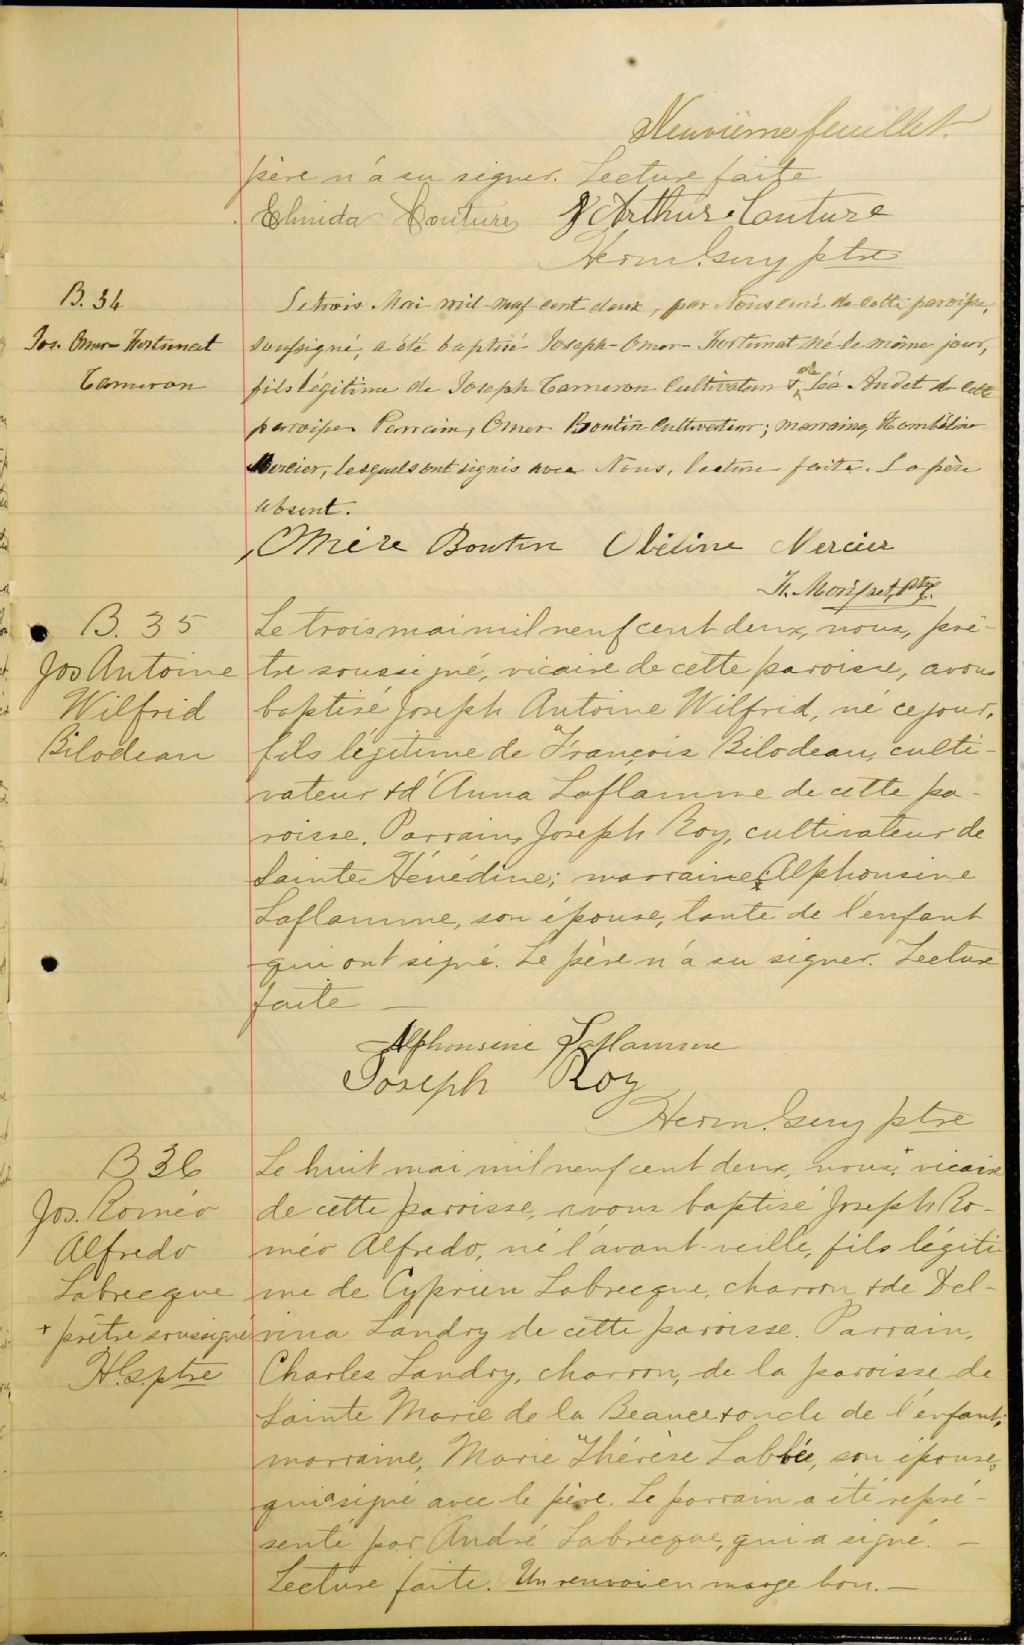 Neuvième feuillet.
père n'a su signer. Lecture faite
Elmida Couture J Arthur Couture
Herm. Guy ptre
B. 34
Jos. Omer Fortunat
Cameron
Le trois Mai mil-neuf cent deux, par Nous curé de cette paroisse,
soussigné, a été baptisé Joseph-Omer-Fortunat né le même jour,
fils légitime de Joseph Cameron Cultivateur & de Léa Audet de cette
paroisse. Parrain, Omer Boutin Cultivateur; marraine,
Mercier, lesquels ont signés avec Nous, lecture faite. Le père
absent.
Omére Boutin Obéline Mercier
ptre.
B. 35
Jos Antoine
Wilfrid
Bilodeau
Le trois mai mil neuf cent deux, nous, prê-
tre soussigné, vicaire de cette paroisse, avons
baptisé Joseph Antoine Wilfrid, né ce jour,
fils légitime de François Bilodeau, culti-
vateur & d'Anna Laflamme de cette pa-
roisse. Parrain, Joseph Roy, cultivateur de
Sainte Hénédine; marraine, Alphonsine
Laflamme, son épouse, tante de l'enfant
qui ont signé. Le père n'a su signer. Lecture
faite —
Alphonsine Laflamme
Joseph Roy
Herm. Guy ptre
B 36
Jos. Roméo
Alfredo
Labrecque
+ prêtre soussigné
H.G. ptre
Le huit mai mil neuf cent deux, nous,+ vicaire
de cette paroisse, avons baptisé Joseph Ro-
méo Alfredo, né l'avant-veille, fils légiti
me de Cyprien Labrecque, charron & de Del-
vina Landry de cette paroisse. Parrain,
Charles Landry, charron, de la paroisse de
Sainte Marie de la Beauce & oncle de l'enfant;
marraine, Marie Thérèse Labbée, son épouse,
qui a signé avec le père. Le parrain a été repré-
senté par André Labrecque, qui a signé. —
Lecture faite. Un renvoi en marge bon. —